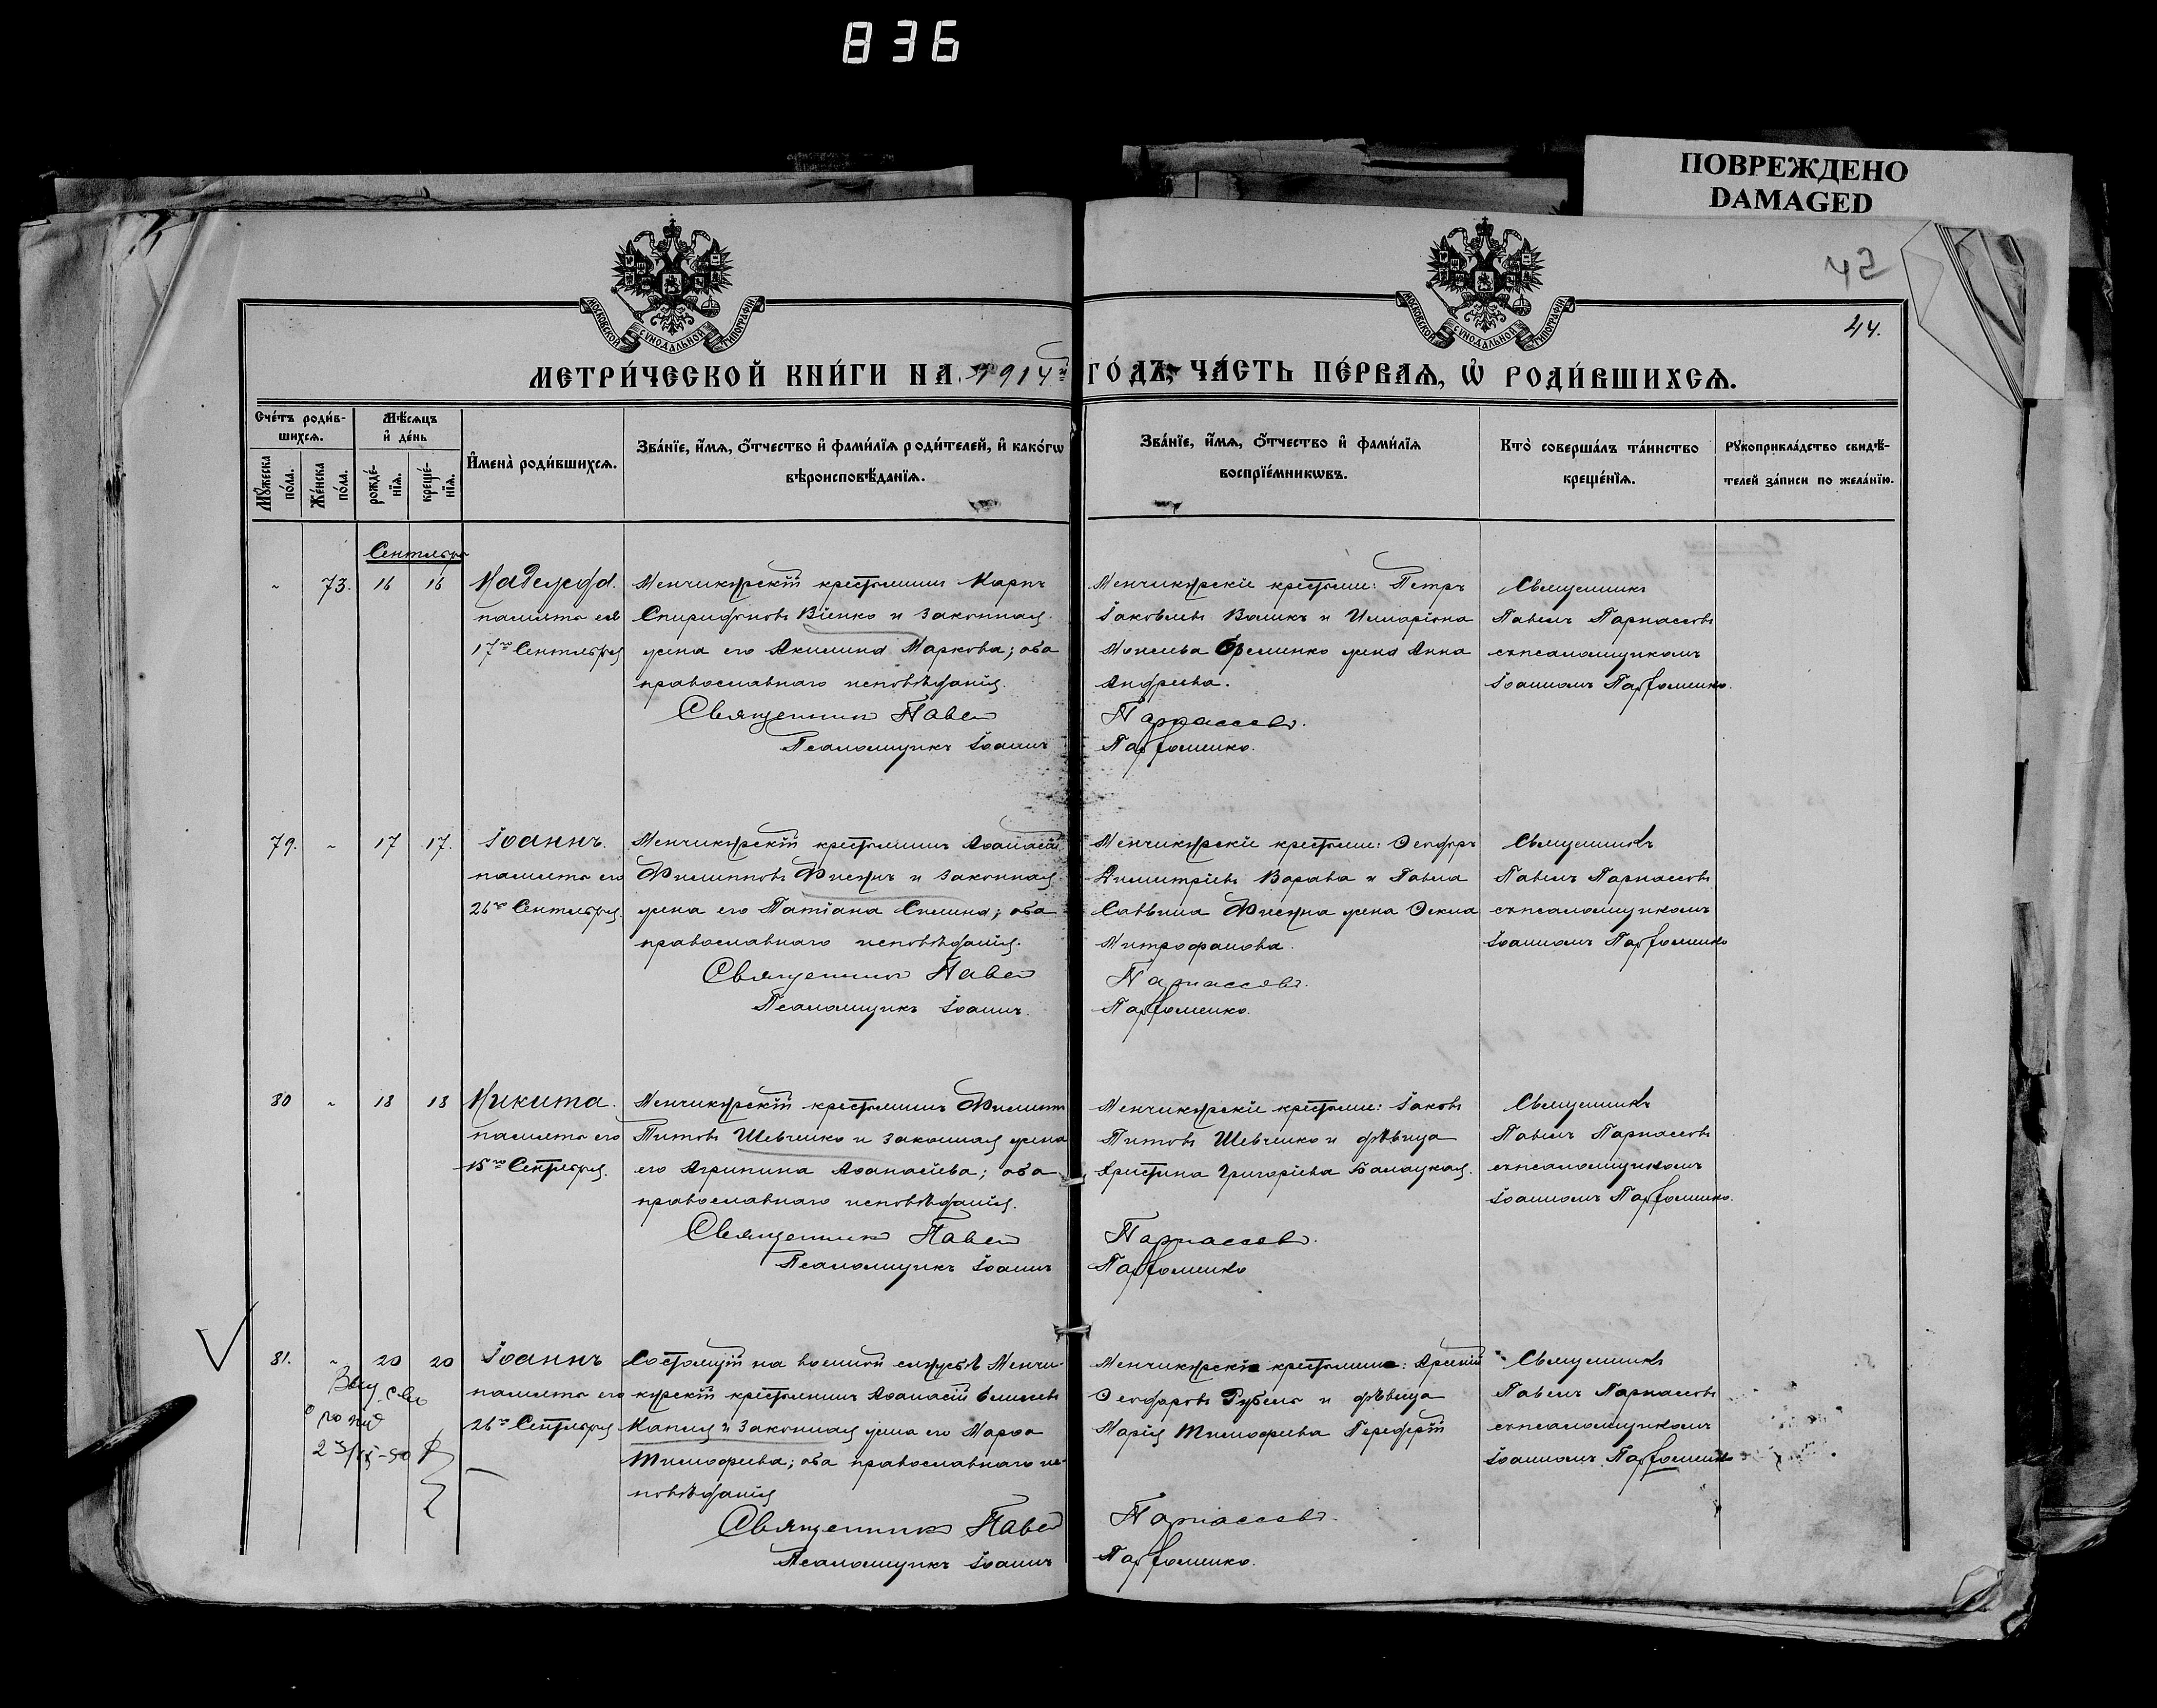 836
ПОВРЕЖДЕНО
DAMAGED
42
44.
МОСКОВСКОЙ СѴНОДАЛЬНОЙ ТИПОГРАФІИ
МОСКОВСКОЙ СѴНОДАЛЬНОЙ ТИПОГРАФІИ
МЕТРИ́ЧЕСКОЙ КНИ́ГИ НА 1914й ГО́ДЪ, ЧА́СТЬ ПЕ́РВАЯ, Ѡ҆ РОДИ́ВШИХСЯ.
Сче́тъ роди́в-
шихся.
Мѣ́сяцъ
и҆ де́нь
Мꙋ́жеска по́ла.
Же́нска по́ла.
рожде́-
нїя.
креще́-
нїя.
И҆мена̀ роди́вшихся.
Зва́нїе, и҆́мя, ѻ҆́тчество и҆ фами́лїя роди́телей, и҆ како́гѡ
вѣроисповѣ́данїя.
Зва́нїе, и҆́мя, ѻ҆́тчество и҆ фами́лїя
воспрїе́мникѡвъ.
Кто̀ соверша́лъ та́инство
креще́нїя.
Рꙋкоприкла́дство свидѣ́-
телей за́писи по жела́нїю.
Сентябрь
" 73. 16 16 Надежда.
память ея
17го Сентября
Менчикурскій крестьянинъ Карпъ
Спиридоновъ Віенко и законная
жена его Акилина Маркова; оба
православнаго исповѣданія.
Священникъ Павелъ
Псаломщикъ Іоаннъ
Менчикурскіе крестьяне: Петръ
Іаковлевъ Воликъ и Илларіона
Моисеева Еременко жена Анна
Андреева.
Парнассовъ.
Парфоменко.
Священникъ
Павелъ Парнассовъ
съ псаломщикомъ
Іоанномъ Парфоменко.
79. " 17 17. Іоаннъ.
память его
26го Сентября.
Менчикурскій крестьянинъ Аѳанасій
Филипповъ Фисунъ и законная
жена его Татіана Симина; оба
православнаго исповѣданія.
Священникъ Павелъ
Псаломщикъ Іоаннъ
Менчикурскіе крестьяне: Ѳеодоръ
Димитріевъ Варава и Павла
Саввина Фисуна жена Ѳекла
Митрофанова.
Парнассовъ.
Парфоменко.
Священникъ
Павелъ Парнассовъ
съ псаломщикомъ
Іоанномъ Парфоменко
80 " 18 18 Никита.
память его
15го Сентября.
Менчикурскій крестьянинъ Филиппъ
Титовъ Шевченко и законная жена
его Агрипина Аѳанасіева; оба
православнаго исповѣданія.
Священникъ Павелъ
Псаломщикъ Іоаннъ
Менчикурскіе крестьяне: Іаковъ
Титовъ Шевченко и дѣвица
Христина Григоріева Балацкая.
Парнассовъ.
Парфоменко
Священникъ
Павелъ Парнассовъ
съ псаломщикомъ
Іоанномъ Парфоменко.
81. " 20 20 Іоаннъ
память его
26го Сентября
Состоящій на военной службѣ Менчи-
курскій крестьянинъ Аѳанасій
и законная жена его Марѳа
Тимоѳеева; оба православнаго ис-
повѣданія
Священникъ Павелъ
Псаломщикъ Іоаннъ
Менчикурскіе крестьяне: Арсеній
Ѳеодоровъ и дѣвица
Марія Тимоѳеева
Парнассовъ.
Парфоменко.
Священникъ
Павелъ Парнассовъ
съ псаломщикомъ
Іоанномъ Парфоменко